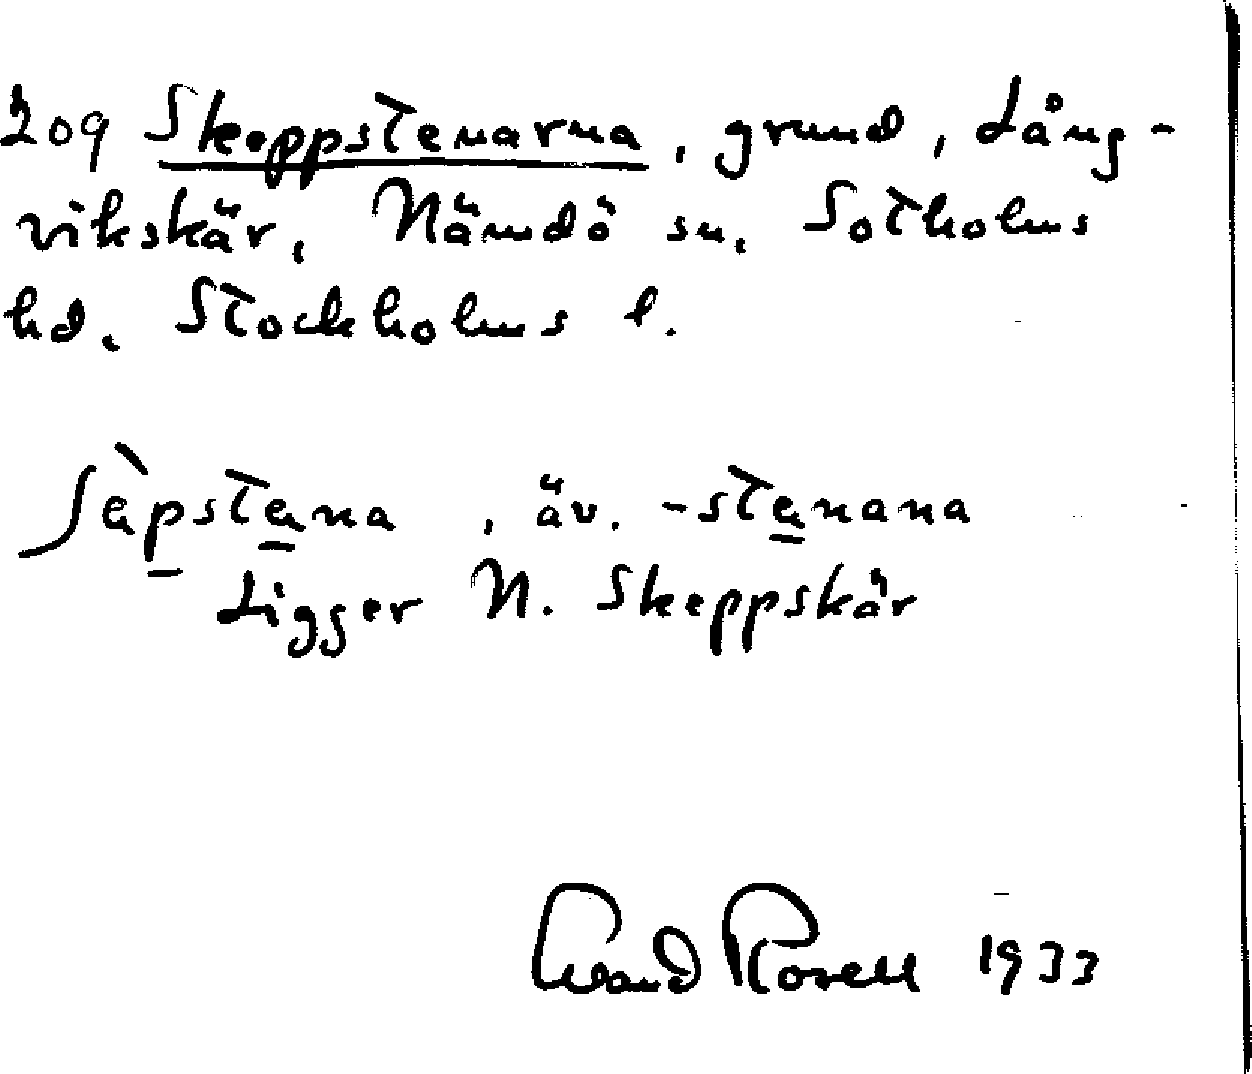 209 Skeppstenarna, grund, Lång-
vikskär, Nämdö sn, Sotholms
hd. Stockholms l.
ʃèpstena, äv. -stenana
Ligger N. Skeppskär
Rosell 1933